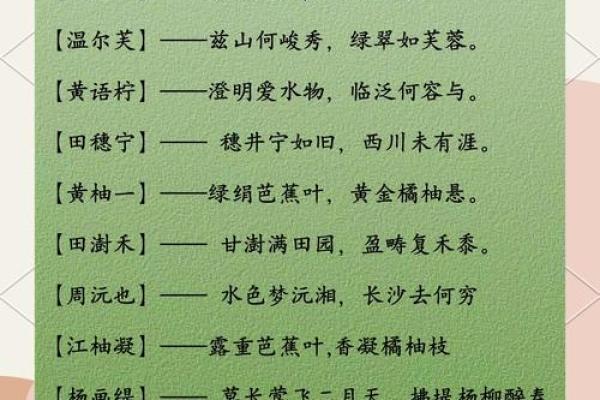 【温尔芙】——兹山何峻秀，绿翠如芙蓉。
【黄语柠】——澄明爱水物，临泛何容与。
【田穗宁】—— 穗井宁如旧，西川未有涯。
【黄柚一】——绿绢芭蕉叶，黄金橘柚悬。
【田澍禾】—— 甘澍满田园，盈畴复禾黍。
【周沅也】—— 水色梦沅湘，长沙去何穷
【江柚凝】——露重芭蕉叶,香凝橘柚枝
【杨画缇】—— 草长莺飞二月天，拂堤杨柳醉春